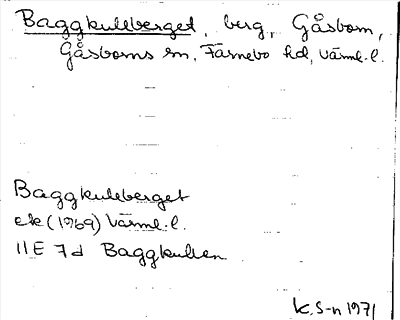 Baggkulleberget, berg, Gåsborn,
Gåsborns sn, Färnebo hd, Värml. l.
Baggkulleberget
ek (1969) Värml. l.
11E 7d Baggkullen
K. S-n 1971